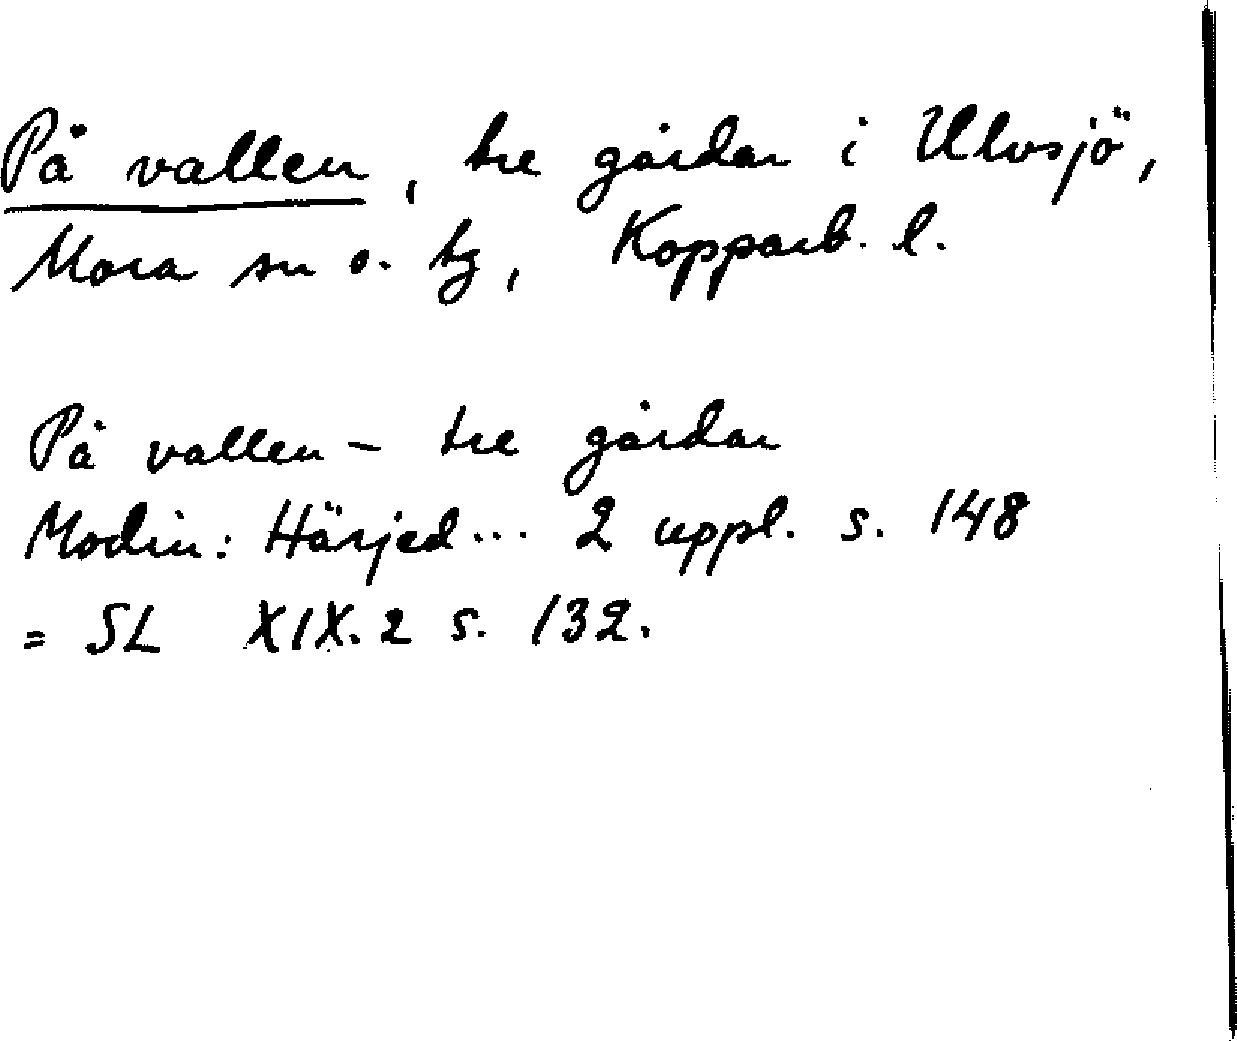 På vallen, tre gårdar i Ulvsjö,
Mora sn o. tg, Kopparb. l.
På vallen – tre gårdar
Modin: Härjed... 2 uppl. s. 148
= SL XIX.2 s. 132.